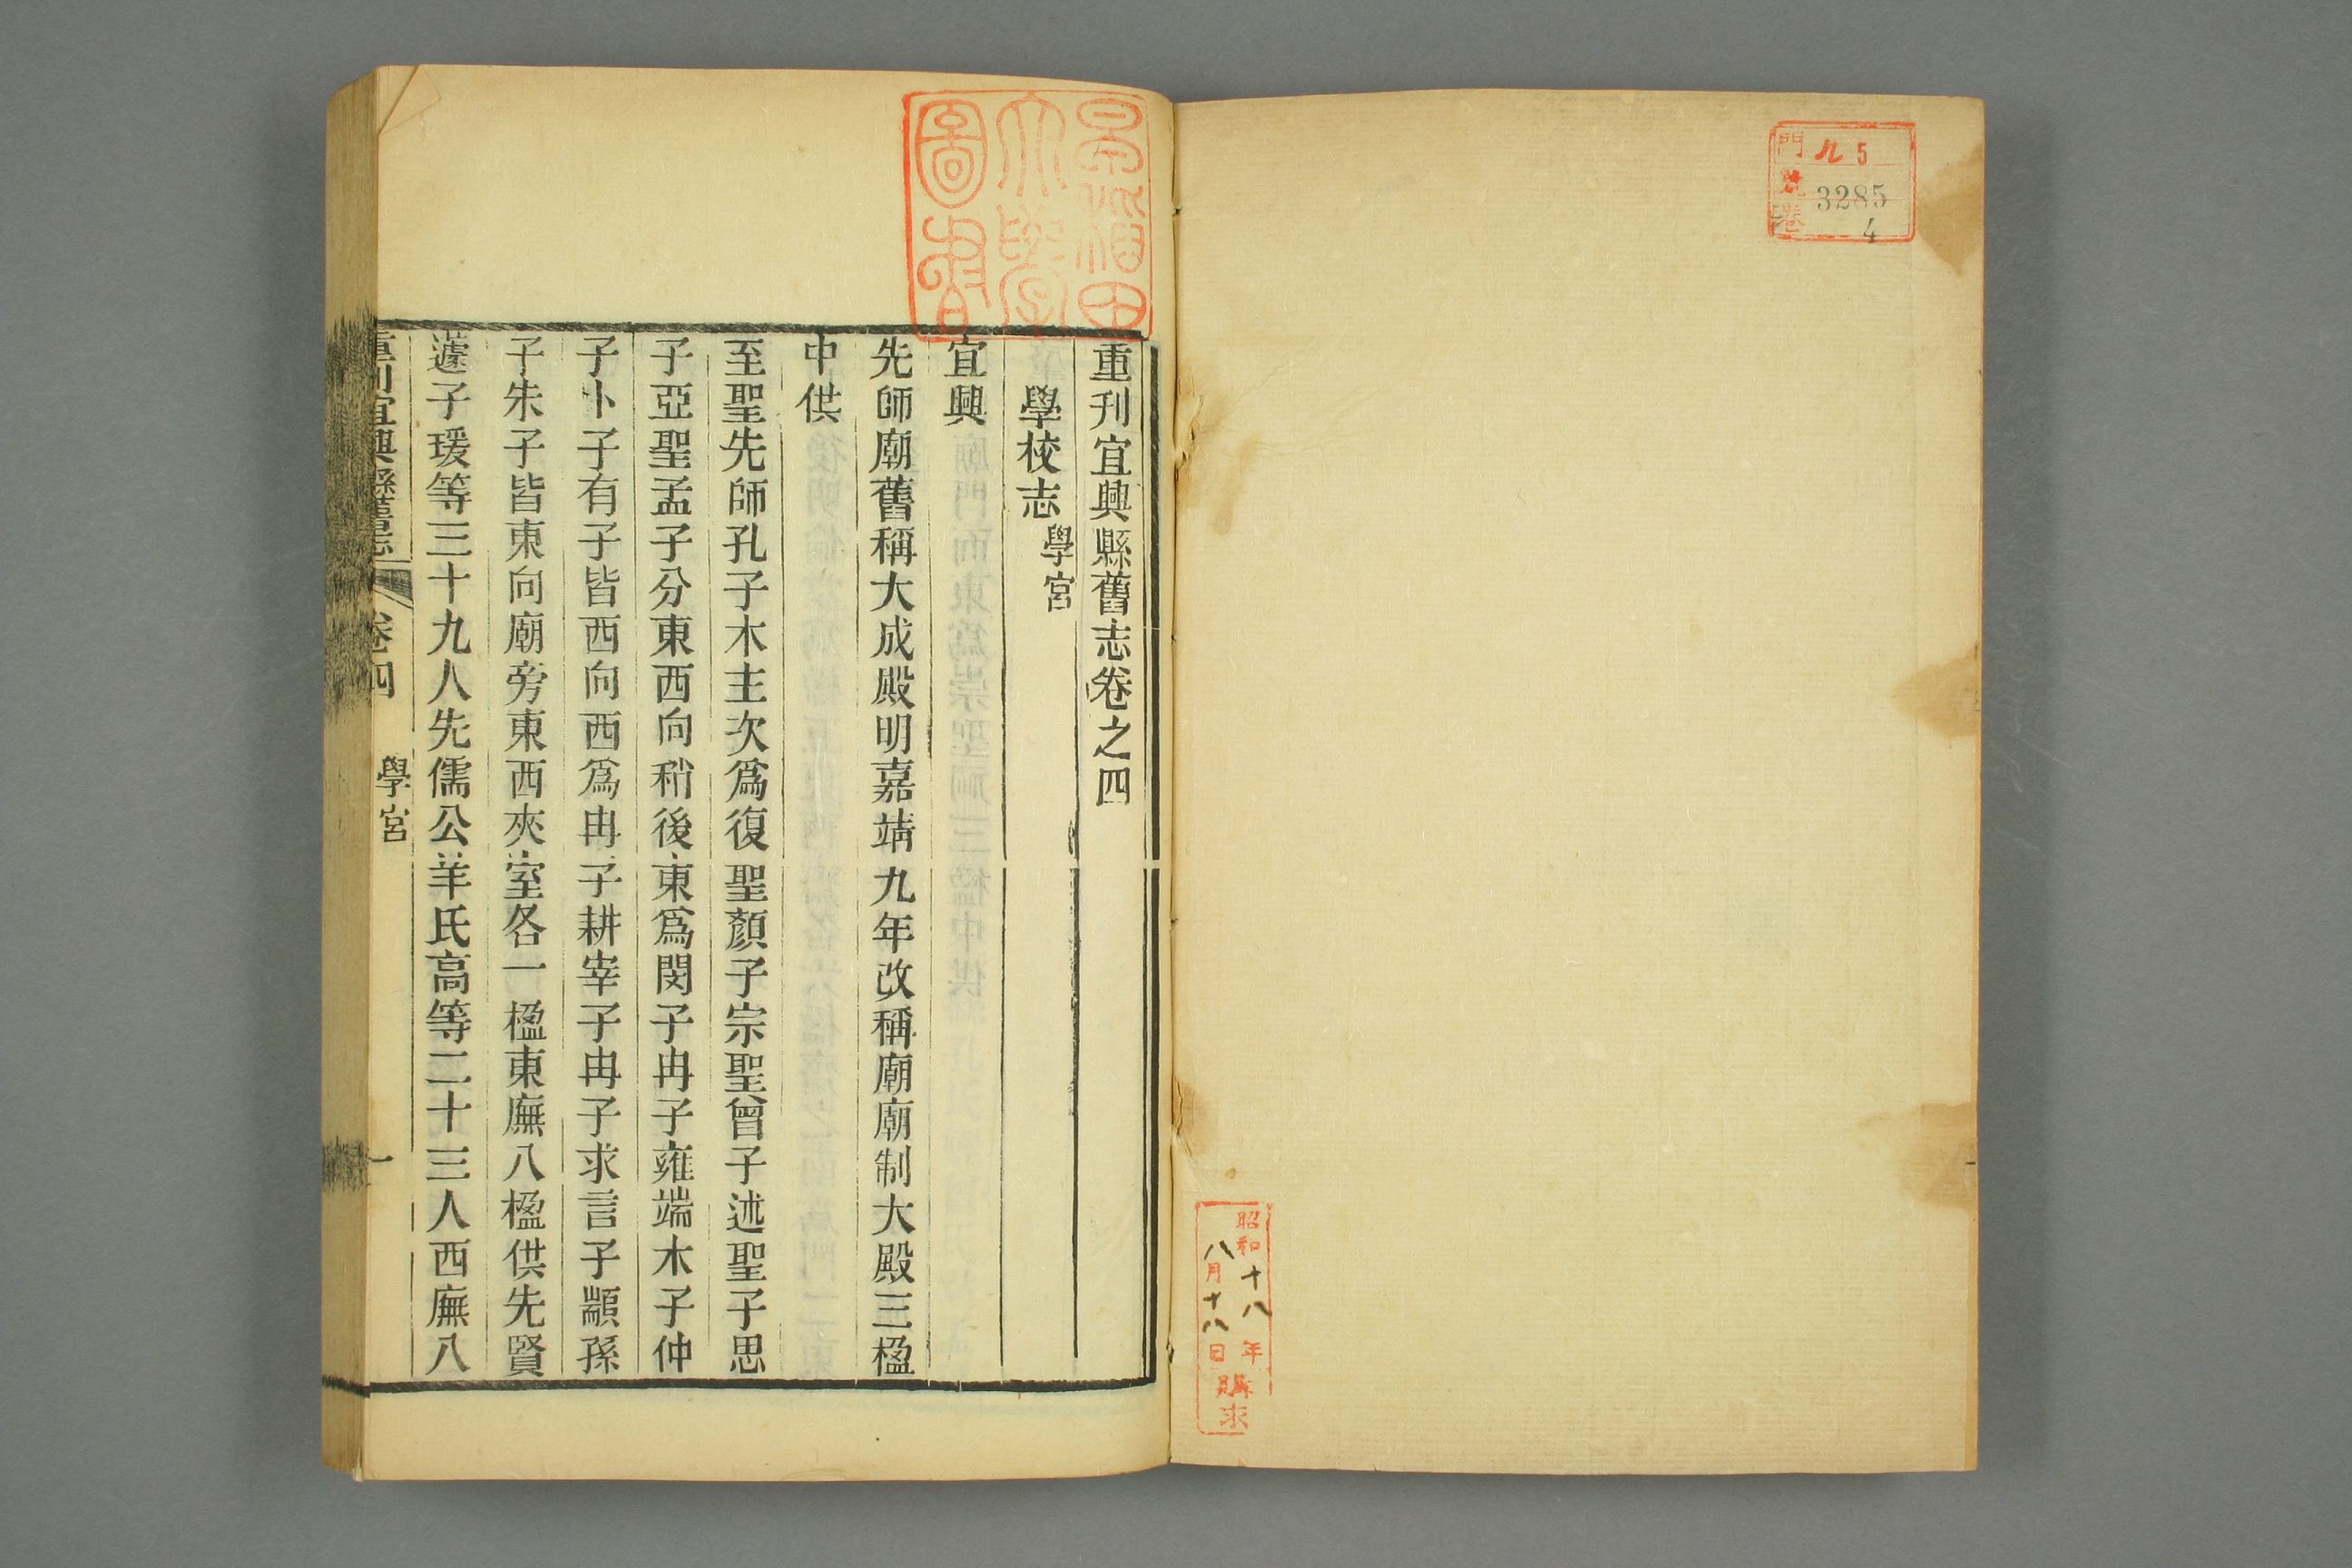 門 ル 5
號 3285
卷 4
昭和十八年
八月十八日
購求
早稲田
大學
圖書
重刊宜興縣舊志卷之四
學校志 學宮
宜興
先師廟舊稱大成殿明嘉靖九年改稱廟廟制大殿三楹
中供
至聖先師孔子木主次爲復聖顏子宗聖曾子述聖子思
子亞聖孟子分東西向稍後東爲閔子冉子雍端木子仲
子卜子有子皆西向西爲冉子耕宰子冉子求言子顓孫
子朱子皆東向廟旁東西夾室各一楹東廡八楹供先賢
蘧子瑗等三十九人先儒公羊氏高等二十三人西廡八
重刊宜興縣舊志 卷四 學宮 一